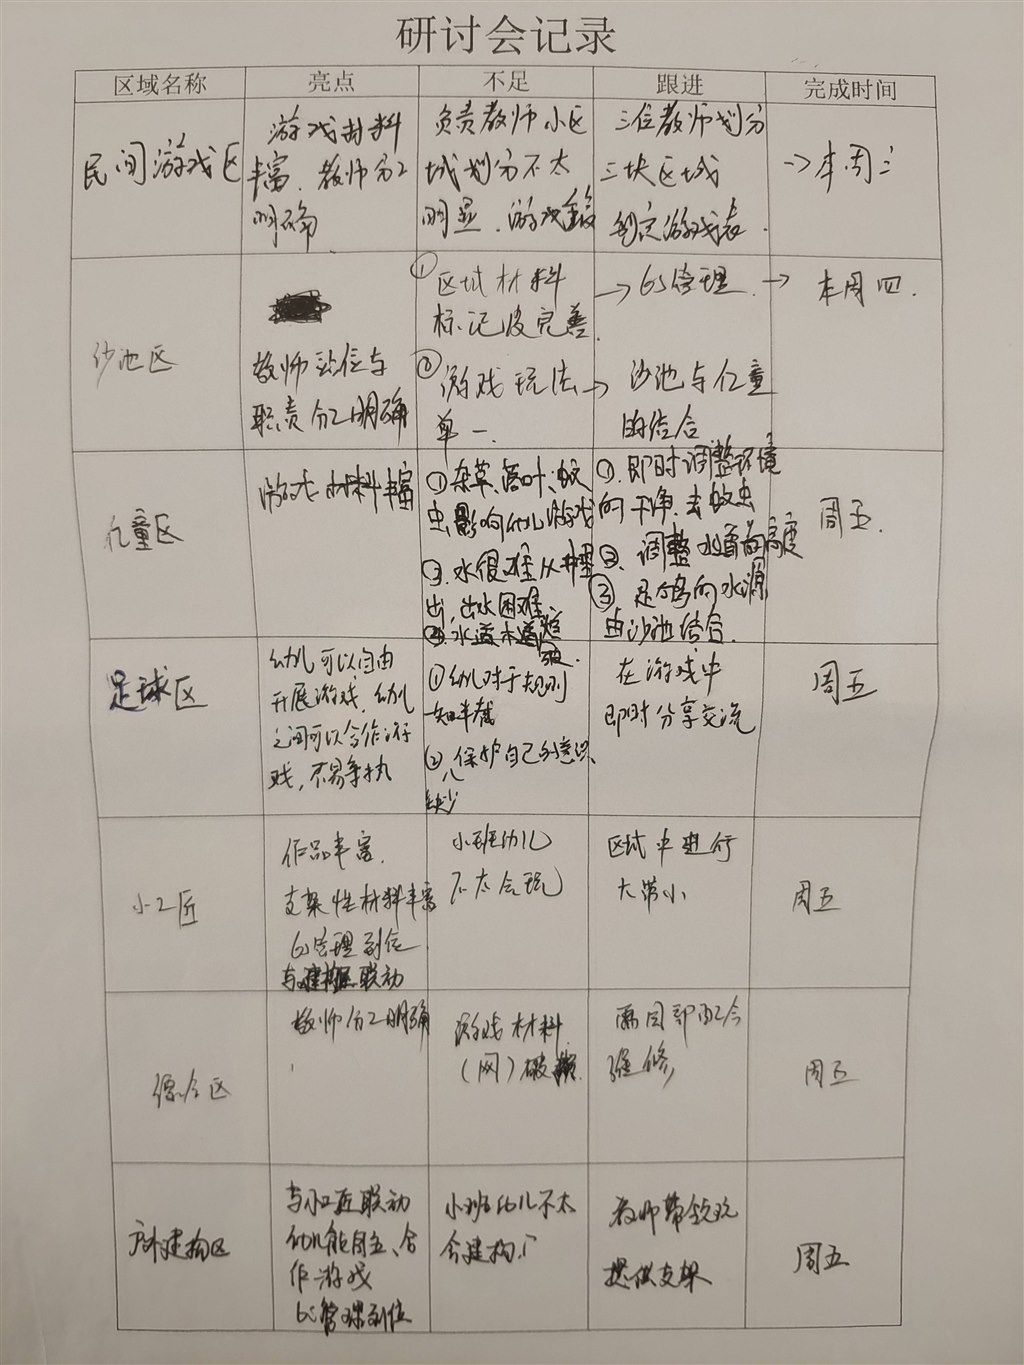 研讨会记录
区域名称
亮点
不足
跟进
完成时间
民间游戏区
游戏材料
丰富、教师分工
明确
负责教师小区
域划分不太
明显、游戏
三位教师划分
三块区域
制定游戏表.
→本周三
沙池区
教师站位与
职责分工明确
①区域材料
标记没完善.
②游戏玩法
单一.
→6S管理.
→沙池与亿童
的结合
→本周四.
亿童区
游戏材料丰富
①杂草、落叶、蚊
虫影响幼儿游戏
②.水很难从井里
出,出水困难
③.水道
①.即时调整环境
的干净、去蚊虫
②.调整水道的高度
③.的水源
由沙池结合.
周五.
足球区
幼儿可以自由
开展游戏,幼儿
之间可以合作游
戏,不易争执
①幼儿对于规则
一知半截
②、保护自己的意识
缺少
在游戏中
即时分享交流
周五
小工匠
作品丰富.
支架性材料丰富
6S管理到位
与建构区联动
小班幼儿
不太会玩
区域中进行
大带小
周五
综合区
教师分工明确
游戏材料
(网)破损.
周五
建构区
与小工匠联动
幼儿能自主、合
作游戏
6S管理到位
小班幼儿不太
会建构.
教师带领玩
提供支架
周五